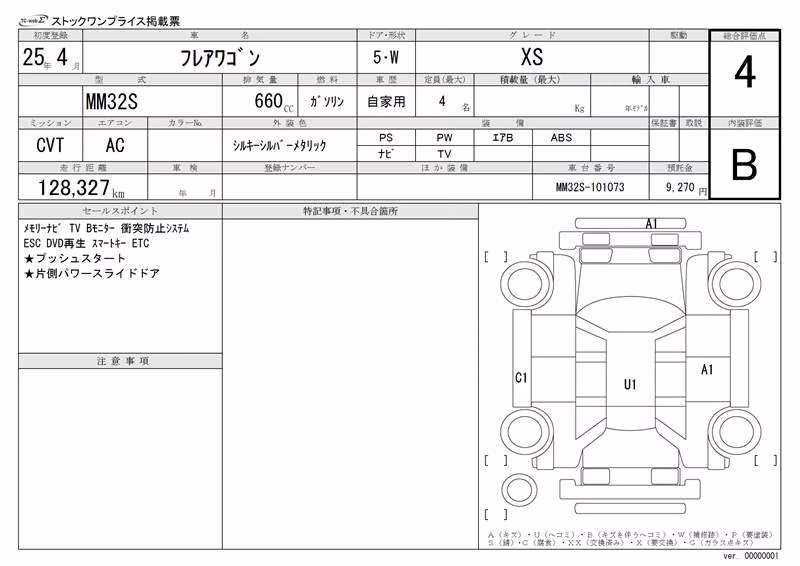 TC-webΣ ストックワンプライス掲載票
初度登録 車名 ドア・形状 グレード 駆動 総合評価点
25年 4月 ﾌﾚｱﾜｺﾞﾝ 5・W XS 4
型式 排気量 燃料 車歴 定員(最大) 積載量(最大) 輸入車
MM32S 660CC ｶﾞｿﾘﾝ 自家用 4名 Kg 年ﾓﾃﾞﾙ
ミッション エアコン カラーNo. 外装色 装備 保証書 取説 内装評価
CVT AC ｼﾙｷｰｼﾙﾊﾞｰﾒﾀﾘｯｸ PS PW ｴｱB ABS B
ﾅﾋﾞ TV
走行距離 車検 登録ナンバー ほか装備 車台番号 預託金
128,327km 年 月 MM32S-101073 9,270円
セールスポイント 特記事項・不具合箇所
ﾒﾓﾘｰﾅﾋﾞ TV Bﾓﾆﾀｰ 衝突防止ｼｽﾃﾑ
ESC DVD再生 ｽﾏｰﾄｷｰ ETC
★プッシュスタート
★片側パワースライドドア
注意事項
A1
[ ] [ ]
C1 U1 A1
[ ] [ ]
[ ]
A（キズ）・U（ヘコミ）・B（キズを伴うヘコミ）・W（補修跡）・P（要塗装）
S（錆）・C（腐食）・XX（交換済み）・X（要交換）・G（ガラス点キズ）
ver. 00000001